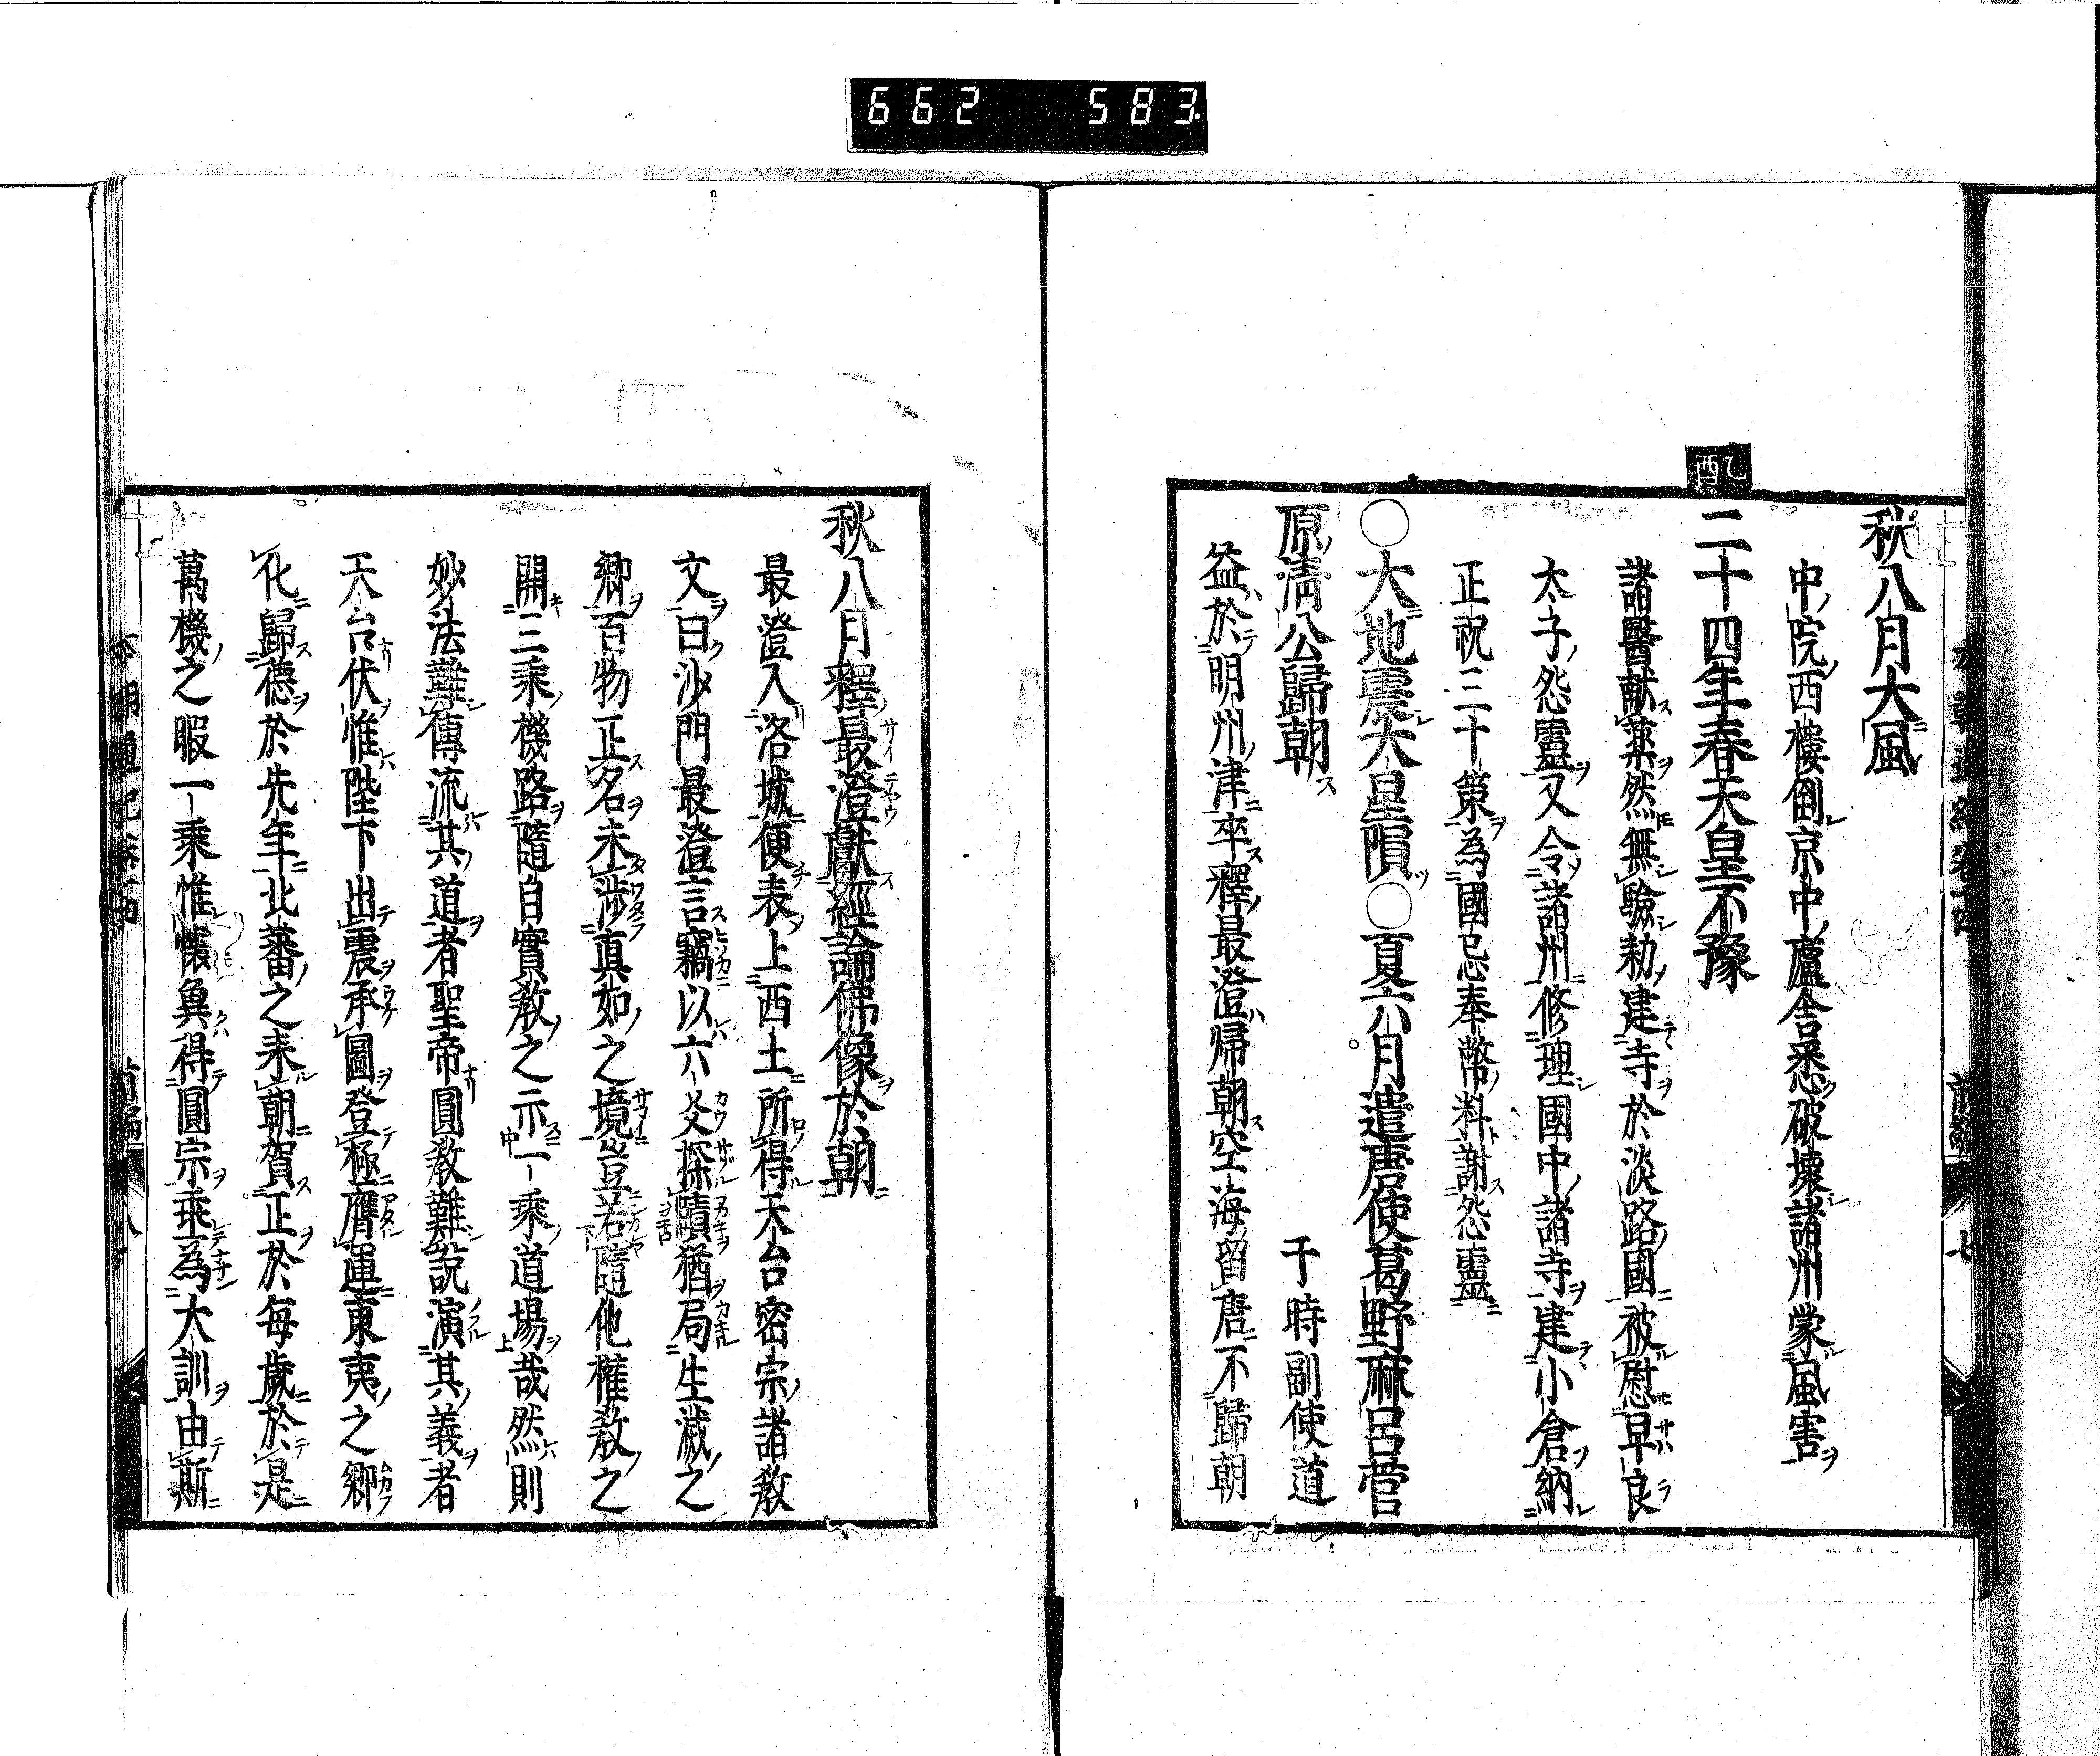 662 583
乙酉
秋八月大風
中院西樓倒京中廬舍悉破壊諸州蒙風害
二十四年春天皇不豫
諸醫献藥然無驗勅建寺於淡路國被慰早良
太子怨靈又令諸州修理國中諸寺建小倉納
正祝三十策為國忌奉幣料謝怨靈
○大地震大星隕○夏六月遣唐使葛野麻呂菅
原清公歸朝 于時副使道
益於明州津卒釋最澄帰朝空海留唐不歸朝
七
秋八月釋最澄獻經論佛像於朝
最澄入洛城便表上西土所得天台密宗諸教
文曰沙門最澄言竊以六爻探賾猶局生滅之
鄉百物正名未涉真如之境豈若隨他權教之
開三乘機路隨自實教之示一乘道場哉然則
妙法難傳流其道者聖帝圓教難説演其義者
天台伏惟陛下出震承圖登極膺運東夷之鄉
化歸德於先年北蕃之来朝賀正於毎歲於是
萬機之暇一乘惟懐奠得圓宗乘為大訓由斯
本朝通紀卷第四 前編 八